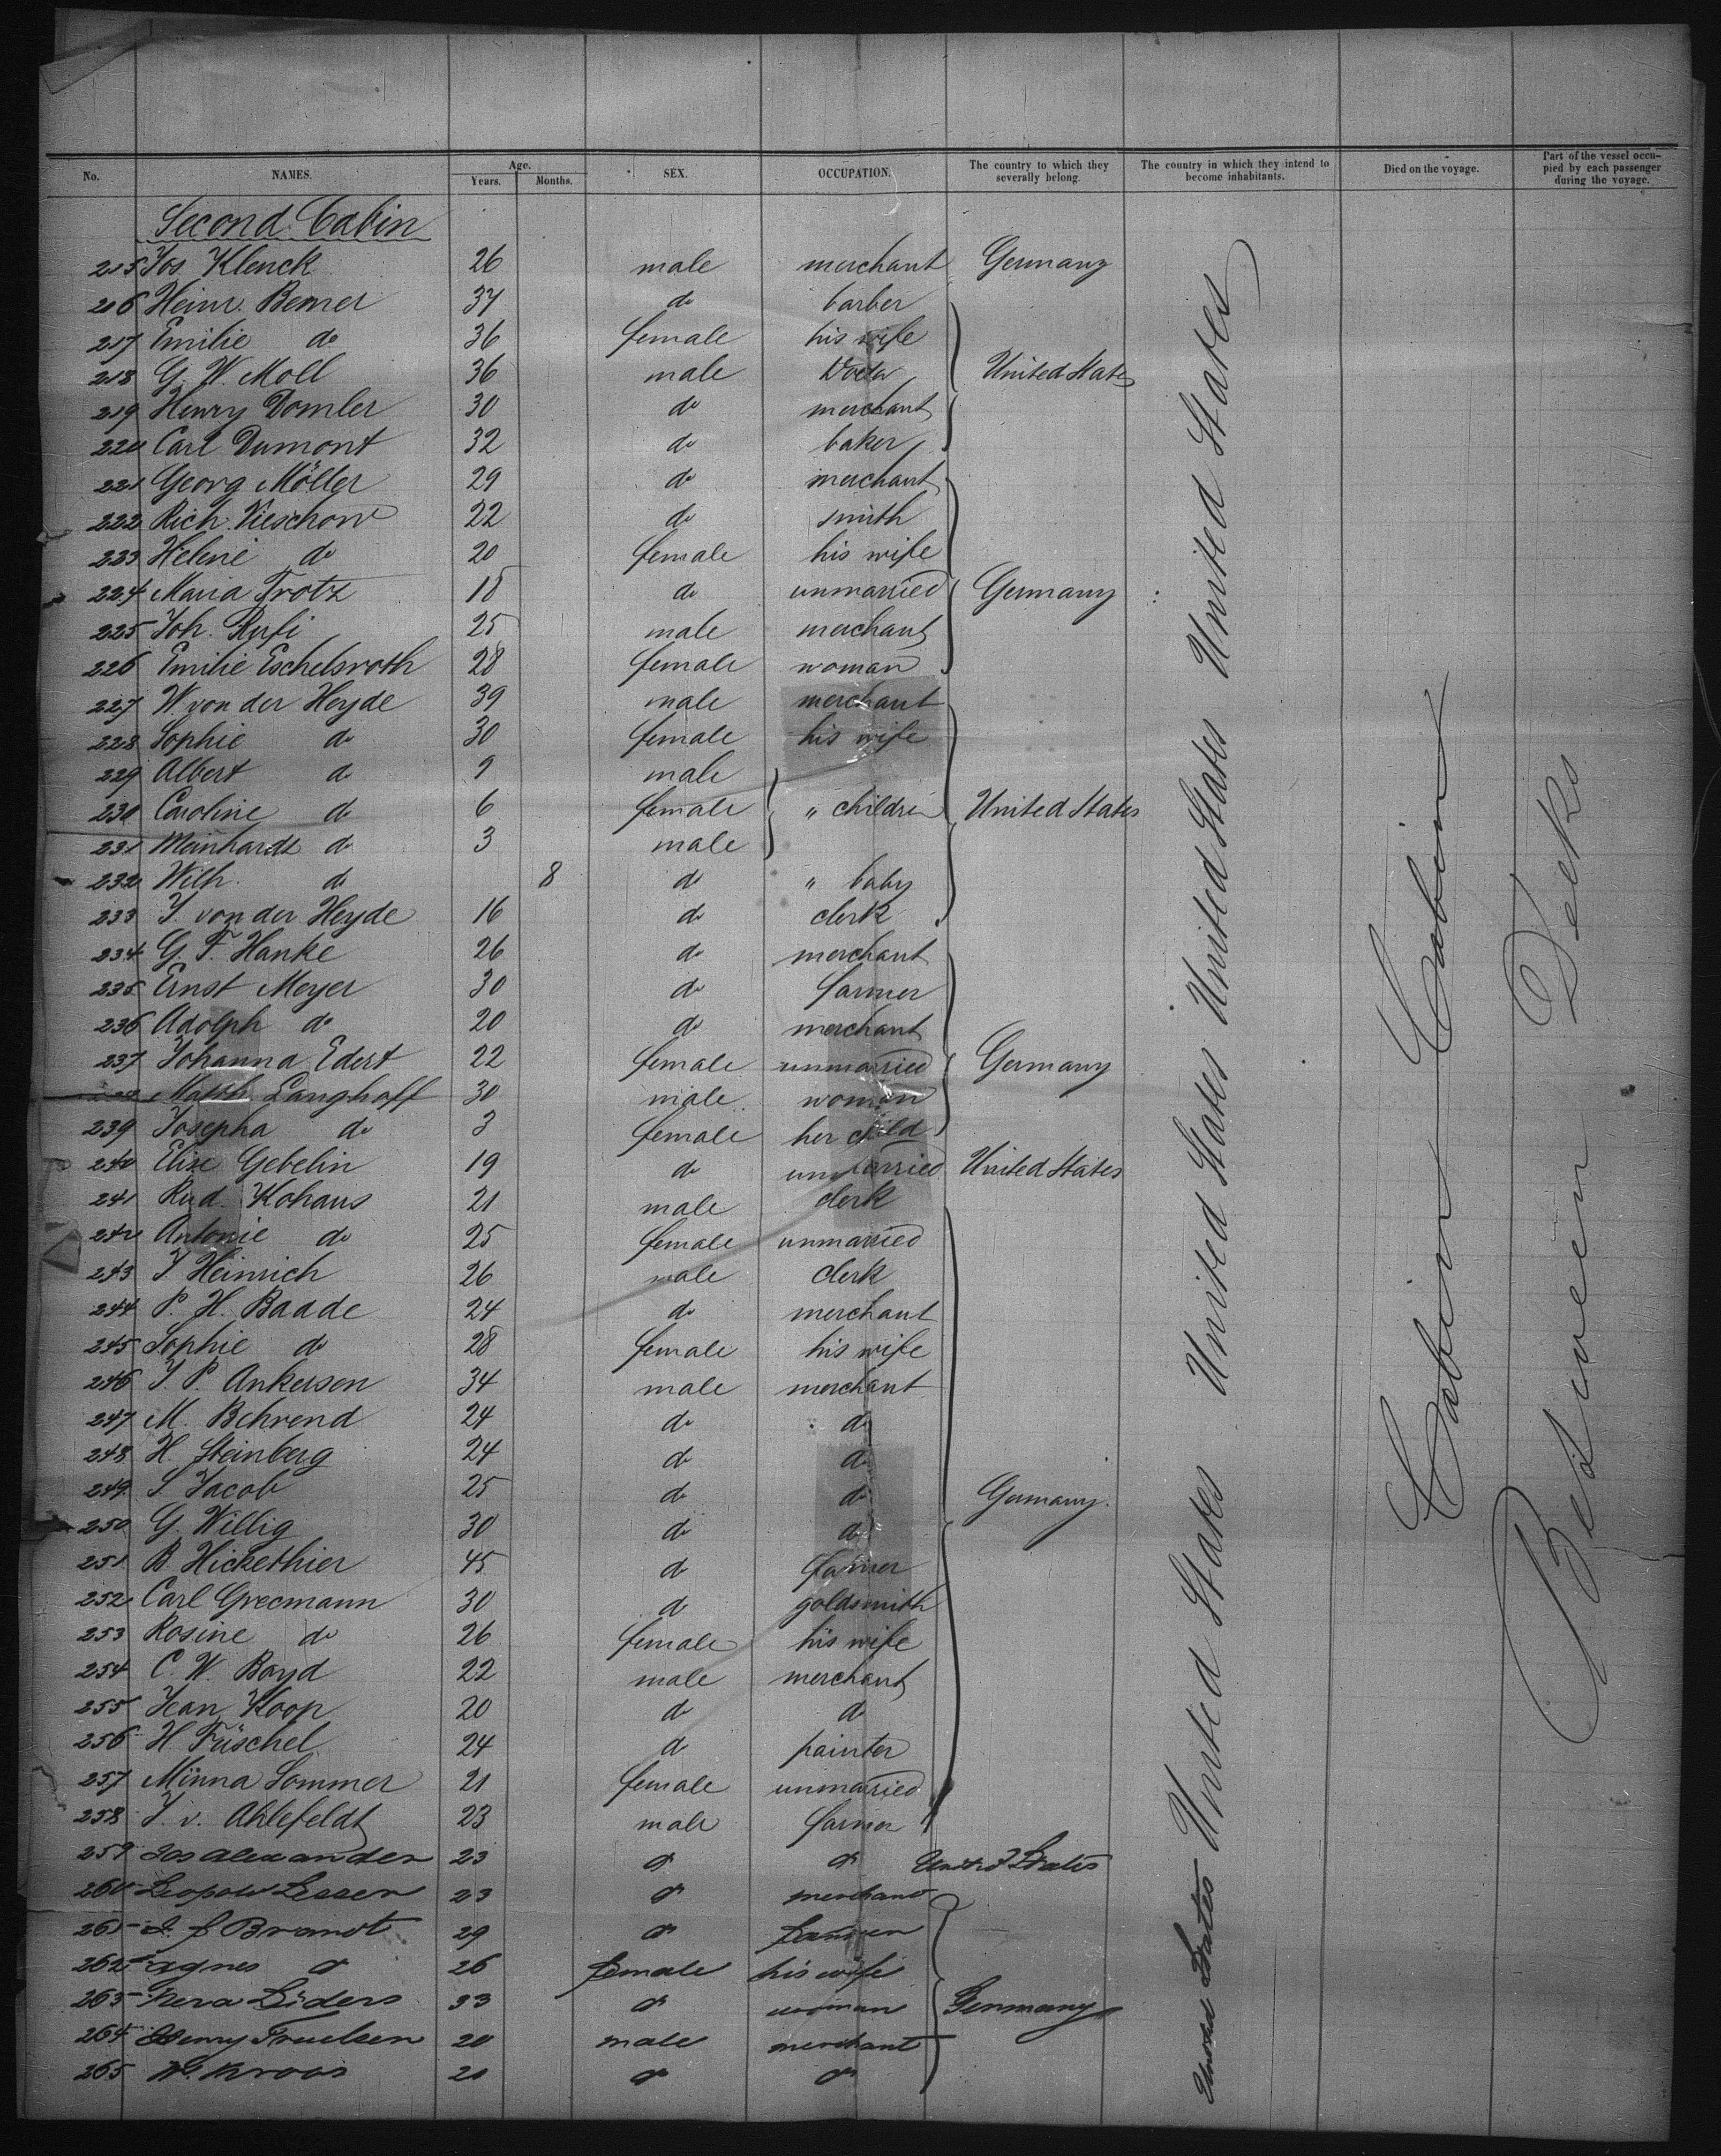 No. NAMES. Age. Years. Months. SEX. OCCUPATION. The country to which they severally belong. The country in which they intend to become inhabitants. Died on the voyage. Part of the vessel occupied by each passenger during the voyage.
Second Cabin
215 Jos. Klenck 26 male merchant Germany
216 Heinr. Bemer 37 do barber
217 Emilie do 36 female his wife
218 G. W. Moll 36 male United States
219 Henry Domler 30 do merchant
220 Carl Dumont 32 do baker
221 Georg Möller 29 do merchant
222 Rich. Vieschow 22 do smith
223 Helene do 20 female his wife
224 Maria Trotz 18 do unmarried Germany
225 Joh. Rufi 25 male merchant
226 Emilie Eschelsroth 28 female woman
227 W von der Heyde 39 male merchant
228 Sophie do 30 female his wife
229 Albert do 9 male
230 Caroline do 6 female " children United States
231 Meinhardt do 3 male
232 Wilh. do 8 do " baby
233 J. von der Heyde 16 do clerk
234 G. F. Hanke 26 do merchant
235 Ernst Meyer 30 do farmer
236 Adolph do 20 do merchant
237 Johanna Edert 22 female unmarried Germany
Langhoff 30 male woman
239 Josepha do 3 female her child
240 Elise Gebelin 19 do unmarried United States
241 Rud. Kohaus 21 male clerk
242 Antonie do 25 female unmarried
243 J Heinrich 26 male clerk
244 P. H. Baade 24 do merchant
245 Sophie do 28 female his wife
246 J. P. Ankersen 34 male merchant
247 M. Behrend 24 do do
248 H. Steinberg 24 do do
249 S Jacob 25 do do Germany.
250 G. Willig 30 do do
251 B. Hickethier 45 do farmer
252 Carl Grecmann 30 do goldsmith
253 Rosine do 26 female his wife
254 C. W. Boyd 22 male merchant
255 Jean Koop 20 do do
256 H. Füschel 24 do painter
257 Minna Sommer 21 female unmarried
258 J. v. Ahlefeldt 23 male farmer
259 Jos Alexander 23 do do United States
260 Leopold Lesser 23 do merchant
261 J. F Brandt 29 do farmer
262 Agnes do 26 female his wife
263 Lüders 33 do woman Germany
264 Henry Truelsen 20 male merchant
265 Kroos 21 do do
United States United States United States United States United States United States
Cabin Cabin
Between Deks